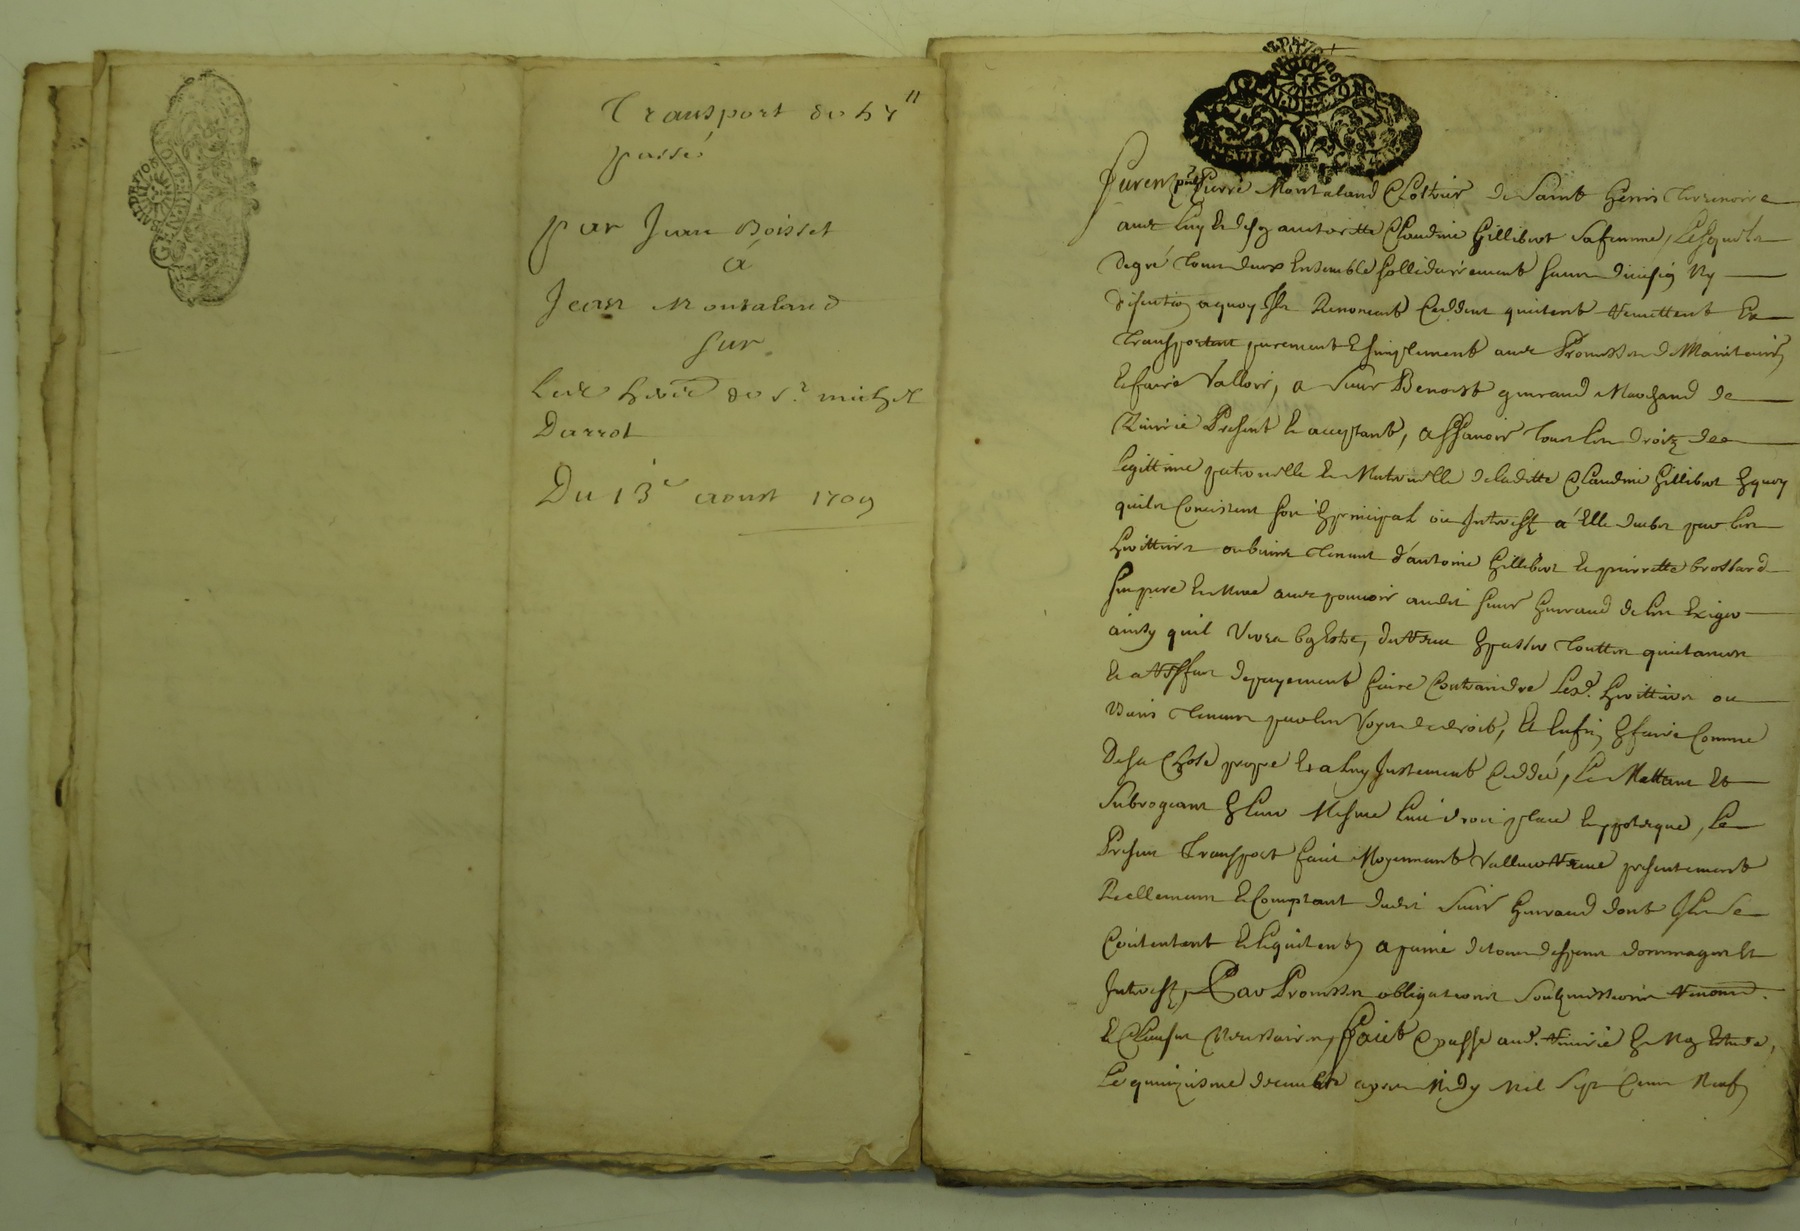 Transport de 57ᵗᵗ
passé
par Jean Boisset
a
Jean Montaland
sur
les herit. de sʳ. michel
Darrot
Du 13ᵉ aoust 1709
GEN. DE LYON
Furent pnts Pierre Montaland Clostrier de Saint Genis Terrenoire
avec luy et de son auctoritte Claudine Gillibert sa femme, Lesquels
de gré tous deux Ensemble sollidairement sans division ny
discution a quoy Ils Renoncent Ceddent quittent remettent Et
transportent purement et simplement avec Promesse de Maintenir
et faire Valloir, a sieur Benoist Marchand de
Present et acceptant, assavoir tous les droitz de
legittime paternelle et Maternelle de laditte Claudine Gillibert En quoy
quils Consistent soit En principal ou Interestz a Elle deubs par les
herittiers ou biens tenant d'antoine Gillibert et pierrette brossard
ses pere et Mere avec pouvoir audit sieur de les Exiger
ainsy quil Verra bon Estre, du receu En passer touttes quittances
et a reffus de payement faire Contraindre lesd. herittiers ou
biens tenans par les Voyes de droit, et Enfin En faire Comme
de sa Chose propre Et a luy Justement Ceddée, le Mettant Et
subrogeant En leur Mesme lieu droit place et ypoteque, le
Present transport fait Moyennant Valleur receue presentement
Reellement et Comptant dudit sieur dont Ils se
Contentent et l'en quittent, a peine de tous despens dommages Et
Interestz, Par Promesses obligations soubzmissions renond.
et Clauses Necessaires, faict et passé aud. En Mon Estude,
Le quinziesme decembre apres Midy Mil sept Cent Neuf,